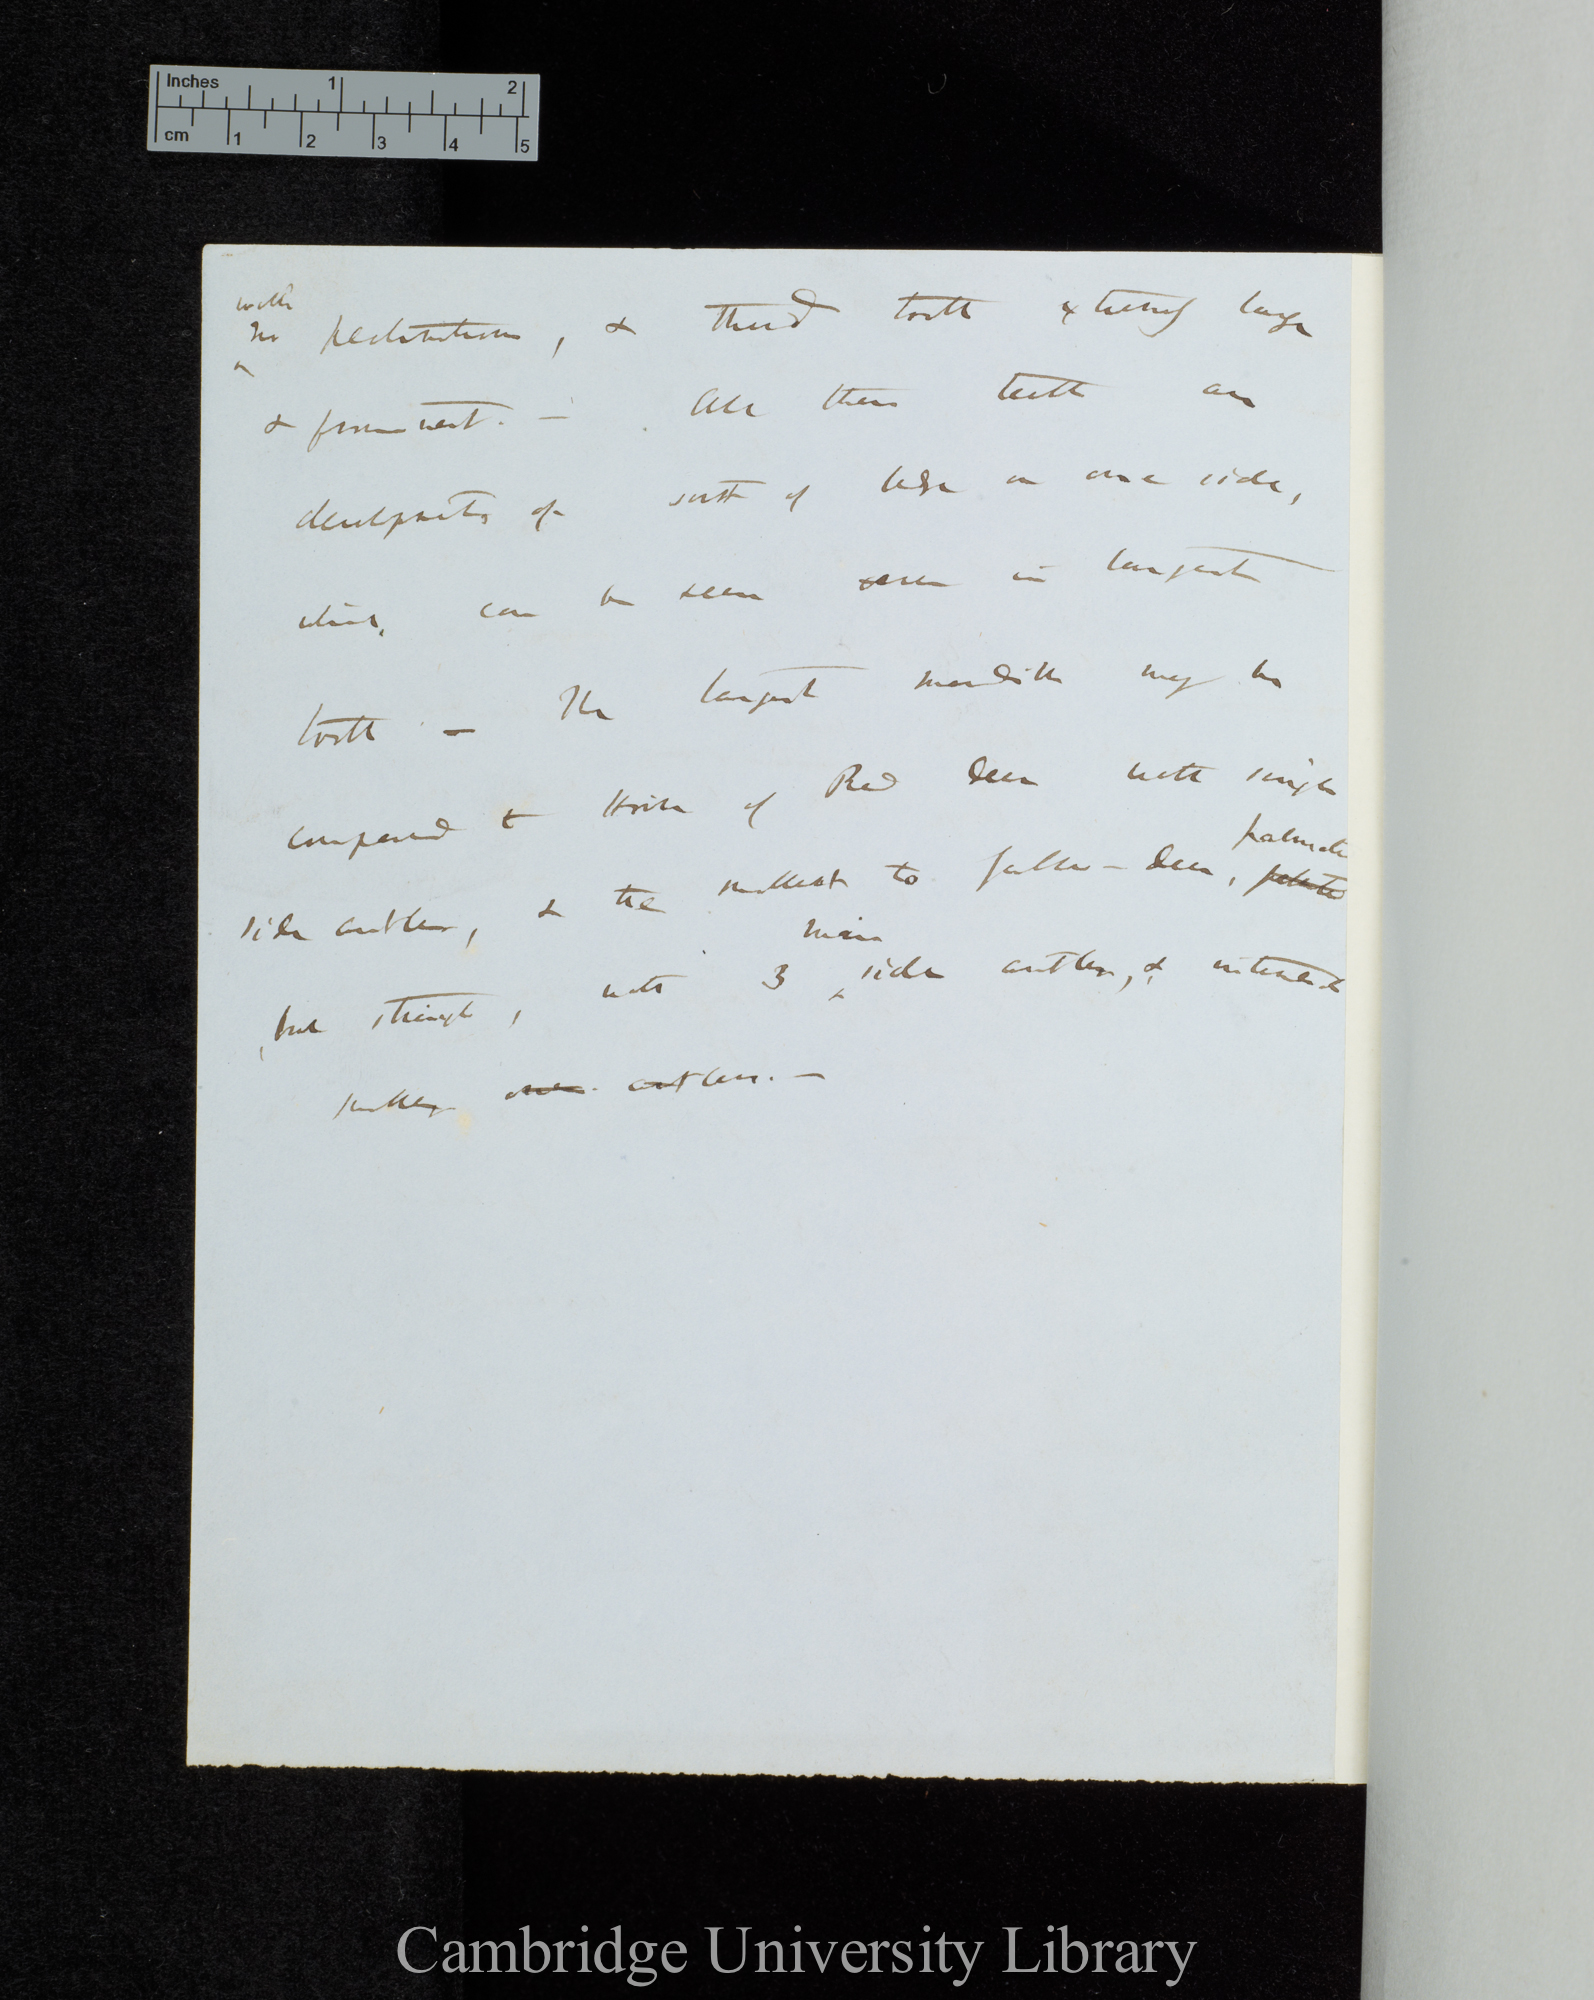 Inches 1 2
cm 1 2 3 4 5
with
no pectinations, & third tooth extremely large
& prominent. — All these teeth are
developments of sort of ledge on one side,
which can be seen even in largest
tooth — The largest mandible may be
compared to Horn of Red deer with single
side antler, & the smallest to fallow-deer, palmate
main
but straight, with 3 side antlers, & intermediate
smaller ones antlers. —
Cambridge University Library